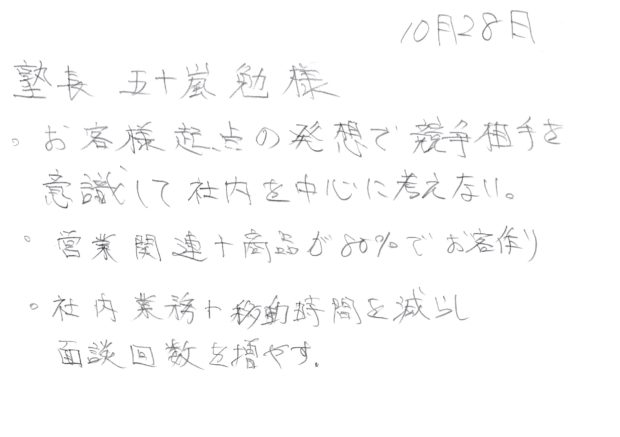 10月28日
塾長 五十嵐勉様
。お客様起点の発想で競争相手を
意識して社内を中心に考えない。
。営業関連+商品が80%でお客作り
。社内業務+移動時間を減らし
面談回数を増やす。